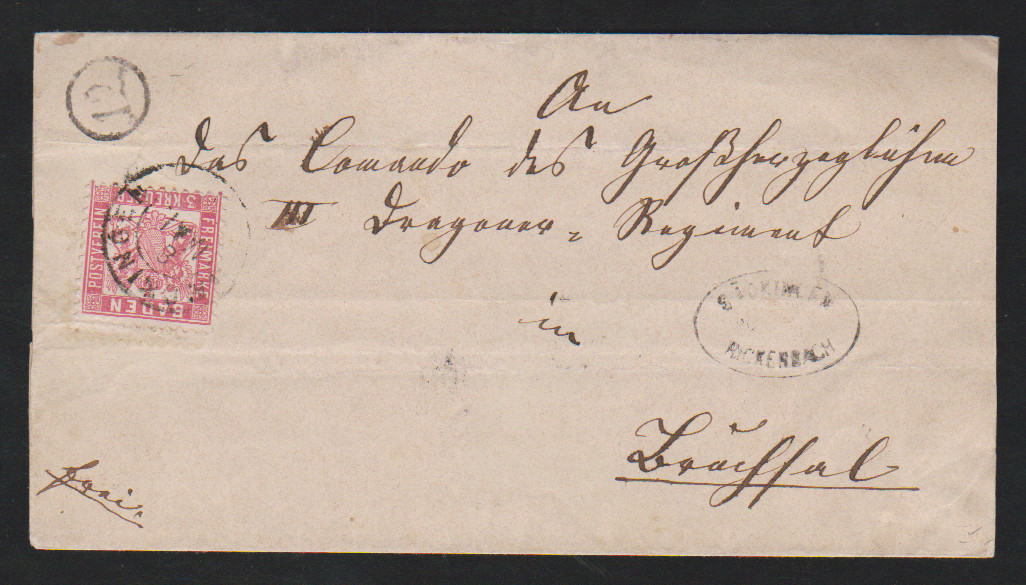 An
das Comando des Großherzoglichen
III Dragoner = Regiment
in
Bruchsal
frei.
3. KREUZER
FREIMARKE
POSTVEREIN
BADEN
SÄCKINGEN
RICKENBACH